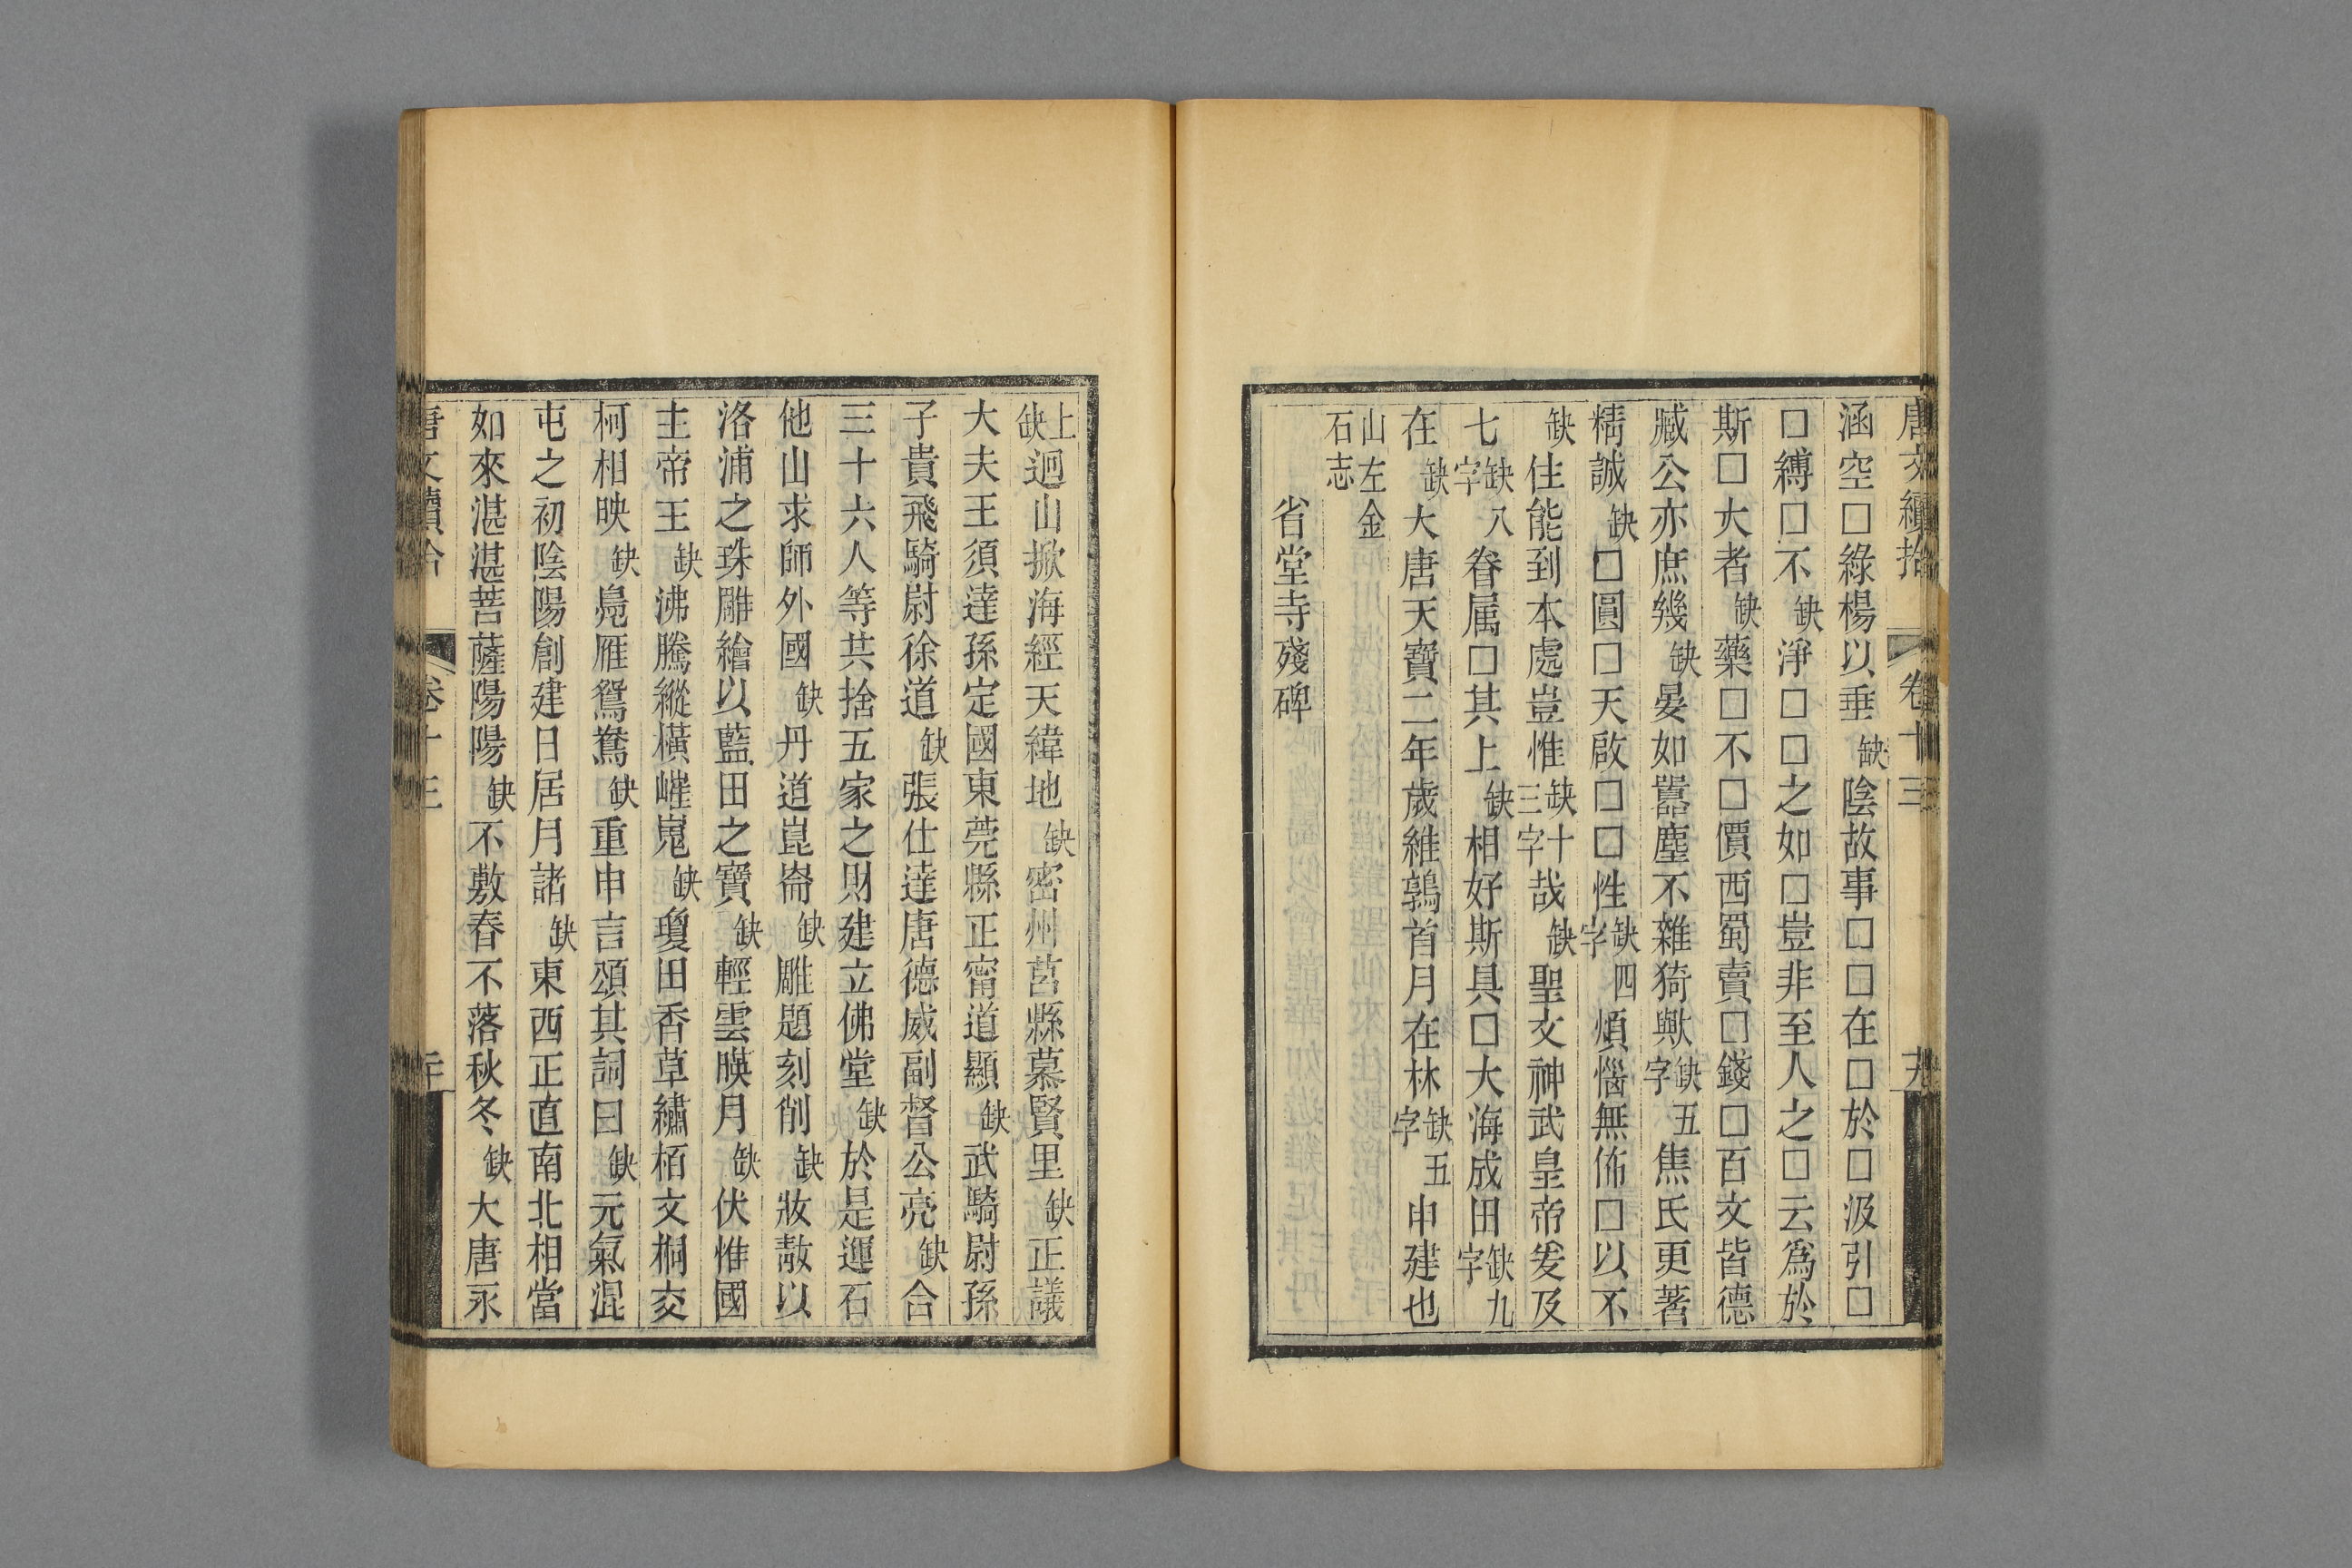 唐文續拾 卷十三
涵空□綠楊以垂缺陰故事□□在□於□汲引□
□縛□不缺淨□□之如□豈非至人之□云爲於
斯□大者缺藥□不□價西蜀賣□錢□百文皆德
臧公亦庶幾缺晏如嚚塵不雜猗歟缺五字焦氏更著
精誠缺□圓□天啟□□性缺四字煩惱無佈□以不
缺住能到本處豈惟缺十三字哉缺聖文神武皇帝爰及
七缺八字眷属□其上缺相好斯具□大海成田缺九字
在缺大唐天寶二年歲維鶉首月在林缺五字申建也
山左金石志
省堂寺殘碑
上缺迥山掀海經天緯地缺密州莒縣慕賢里缺正議
大夫王須達孫定國東莞縣正甯道顯缺武騎尉孫
子貴飛騎尉徐道缺張仕達唐德威副督公亮缺合
三十六人等共捨五家之財建立佛堂缺於是運石
他山求師外國缺丹道崑崙缺雕題刻削缺妝㪉以
洛浦之珠雕繪以藍田之寶缺輕雲暎月缺伏惟國
主帝王缺沸騰縱橫嵯嵬缺瓊田香草繡栢文桐交
柯相映缺鳧雁鴛鴦缺重申言頌其詞曰缺元氣混
屯之初陰陽創建日居月諸缺東西正直南北相當
如來湛湛菩薩陽陽缺不敷春不落秋冬缺大唐永
唐文續拾 卷十三